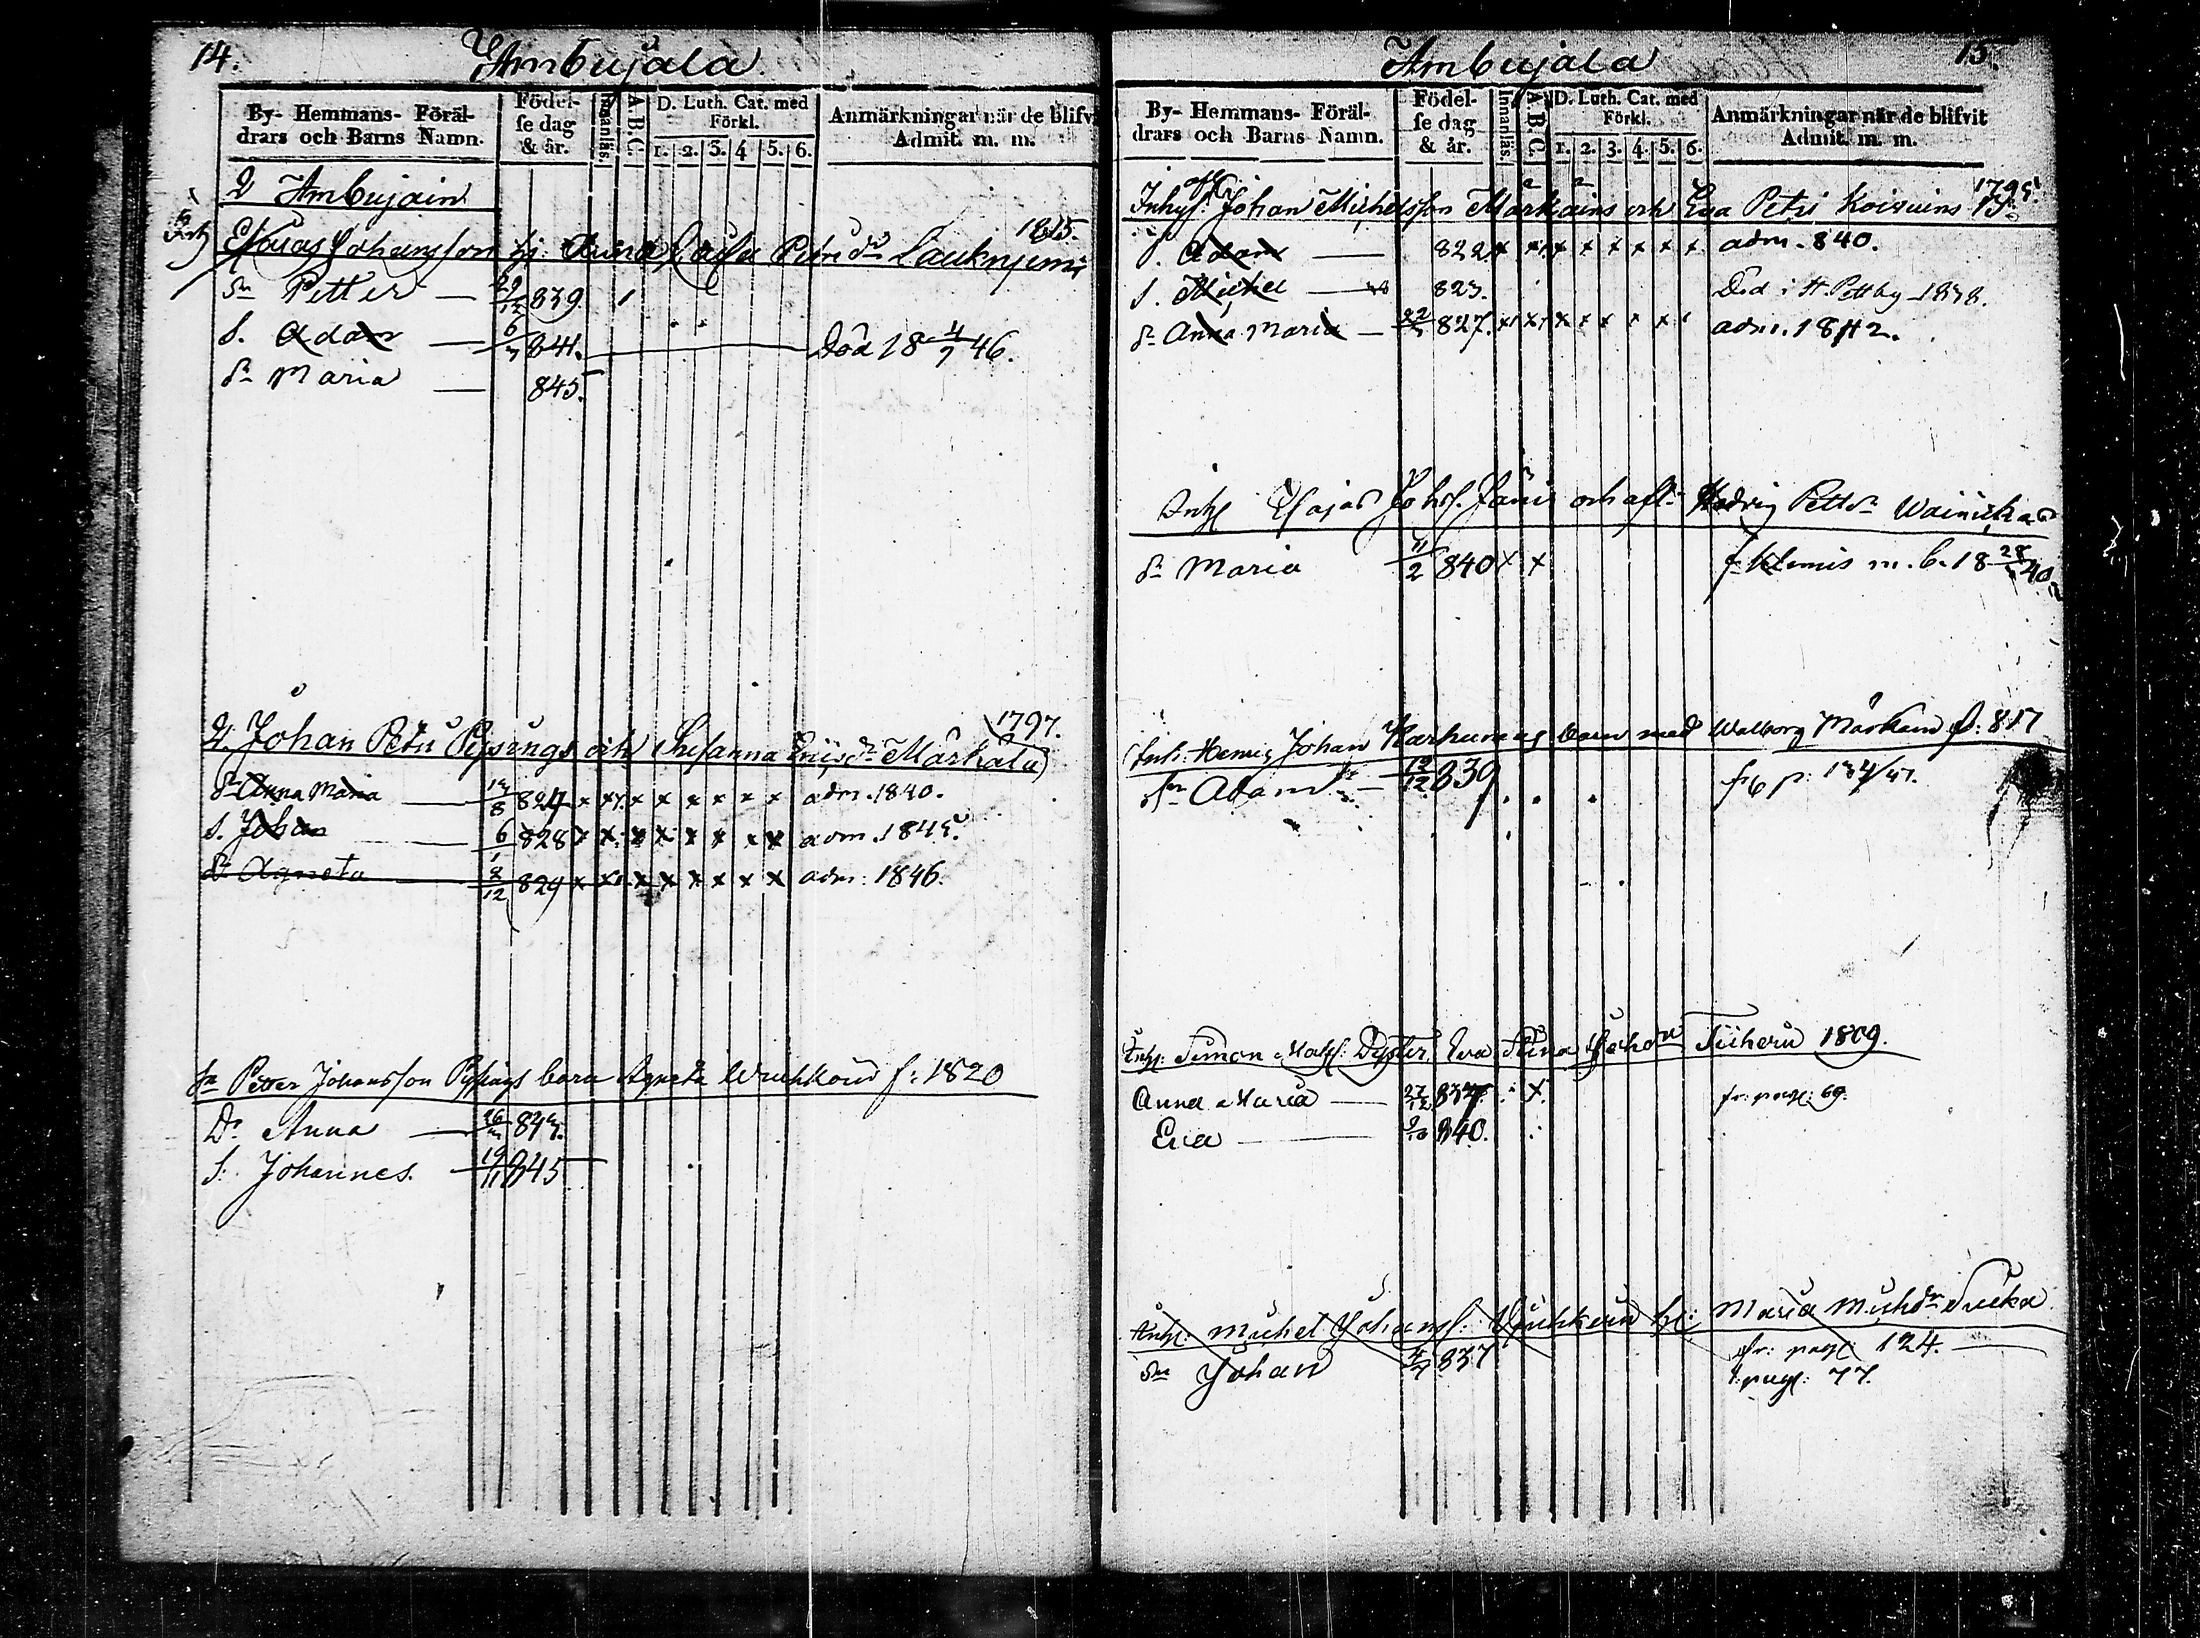 14.
Ambujala
By- Hemmans- Föräl-
drars och Barns Namn.
Födel-
se dag
& år.
Innanläs.
A. B. C.
D. Luth. Cat. med
Förkl.
1. 2. 3. 4 5. 6.
Anmärkningar när de blifv
Admit. m. m.
2 Ambujain
1815.
Johansson hj: Anna Caisa Petri dr Lauknjemi
Sn Petter — 29/12 839. 1
S. Adam — 6/7 841. Död 18 4/7 46.
Dr Maria — 845.
1797.
2. Johan Petri Pysings och Susanna dr Markala
Dr Anna Maria — 824 x x x x x x x x adm. 1840.
S. Johan — 6/1 828 x x x x x x x x adm. 1845.
Dr Agneta — 8/12 829 x x x x x x x x adm: 1846.
Sn Petter Johansson Pysings barn Agneta Wuchkoin f: 1820
Dr Anna — 843.
S: Johannes. 19/11 845
15.
Ambujala
By- Hemmans- Föräl-
drars och Barns Namn.
Födel-
se dag
& år.
Innanläs.
A. B. C.
D. Luth. Cat. med
Förkl.
1. 2. 3. 4. 5. 6.
Anmärkningar när de blifvit
Admit. m. m.
1795.
Inhys: Johan Michelsson Markains och Eva Petri Koisuins
S. Adam — 822 x x x x x x x x adm. 840.
S. Michel — 823. Död i St. Pettbg 1838.
Dr Anna Maria — 827. x x x x x x x adm. 1842.
Inhs Esajas Johs. Jänis och afl: Hedrig Pettdr Wainikas
Dr Maria 11/2 840 x x fr Klemis m. b. 18 40
Inh: Henrig Johan Karhunens barn med Walborg Markain f: 817
Sn Adam — 12/12 839 fr p: 47.
Inhs: Simon Mats: Dyster, Eva Stina Tiihoin 1809.
Anna Maria — 27/12 837. x fr: pag: 69.
Eva — 9/10 840.
Inhs: Michel Johans: Wuchkoin hj: Maria Michdr Suika
Sn Johan 837 fr: pag: 124.
t: pag: 77.